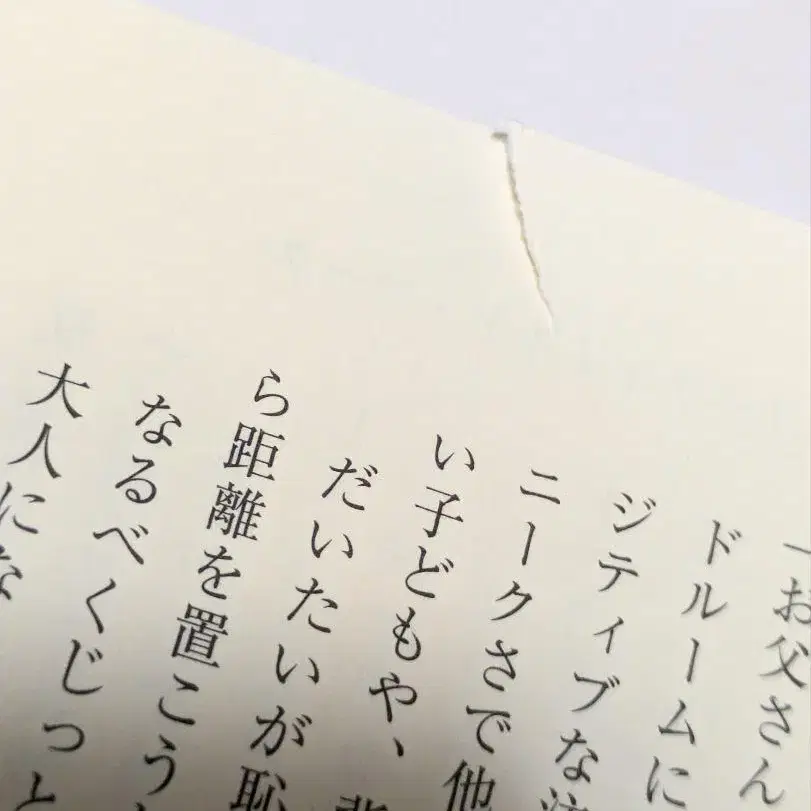 「お父さん
ドルームに
ジティブな
ニークさで他
い子どもや、
だいたいが恥
ら距離を置こう
なるべくじっと
大人にな